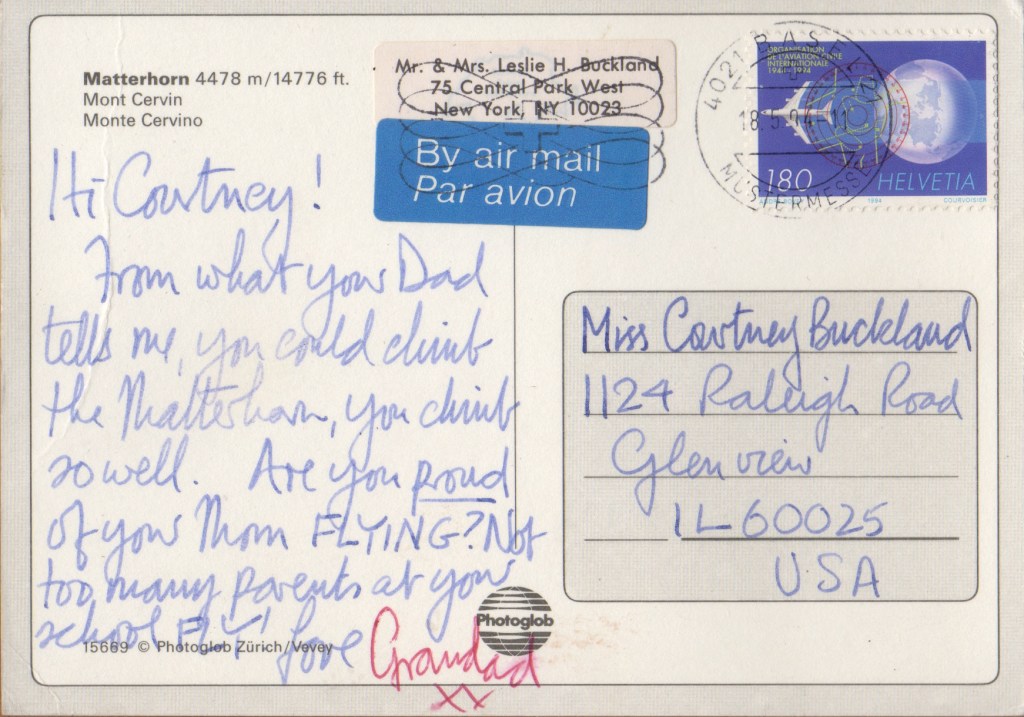 Matterhorn 4478 m/14776 ft.
Mont Cervin
Monte Cervino
Mr. & Mrs. Leslie H. Buckland
75 Central Park West
New York, NY 10023
By air mail
Par avion
4021 BASEL 21
18.5.94-11
MUSTERMESSE
ORGANISATION
DE L'AVIATION CIVILE
INTERNATIONALE
1944-1994
180 HELVETIA
1994 COURVOISIER
Hi Courtney!
From what your Dad
tells me, you could climb
the Matterhorn, you climb
so well. Are you proud
of your Mom FLYING? Not
too many parents at your
school FLY! Love Grandad
XX
Miss Courtney Buckland
1124 Raleigh Road
Glenview
IL 60025
USA
Photoglob
15669 © Photoglob Zürich/Vevey